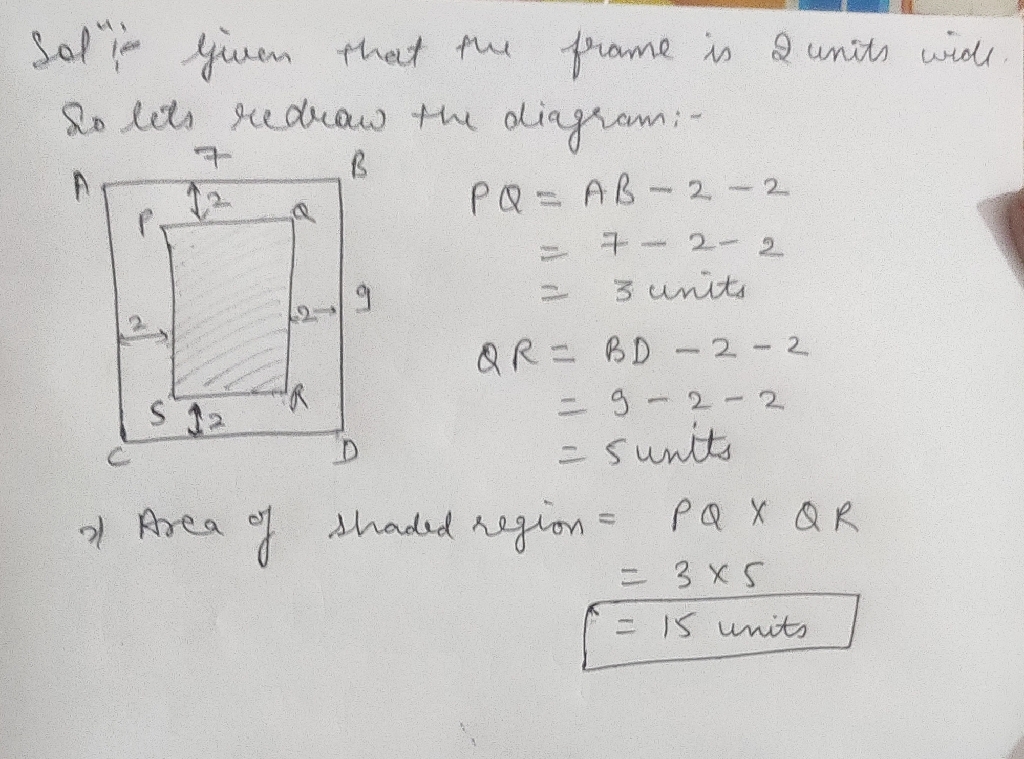 Solⁿ:- Given that the frame is 2 units wide.
So lets redraw the diagram:-
7
A B
2
P Q
PQ = AB - 2 - 2
= 7 - 2 - 2
= 3 units
2 2 9
QR = BD - 2 - 2
= 9 - 2 - 2
= 5 units
S 2 R
C D
⇒ Area of shaded region = PQ X QR
= 3 x 5
= 15 units